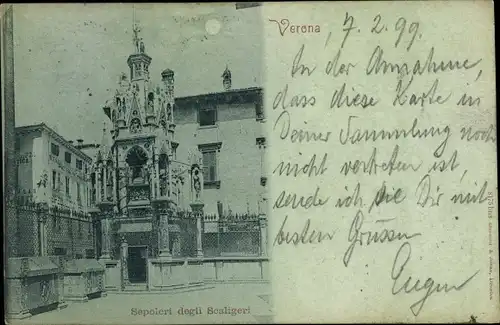 Verona
7. 2. 99
In der Annahme,
dass diese Karte in
Deiner Sammlung noch
nicht vertreten ist,
sende ich sie Dir mit
besten Grüssen
Eugen
Sepolcri degli Scaligeri